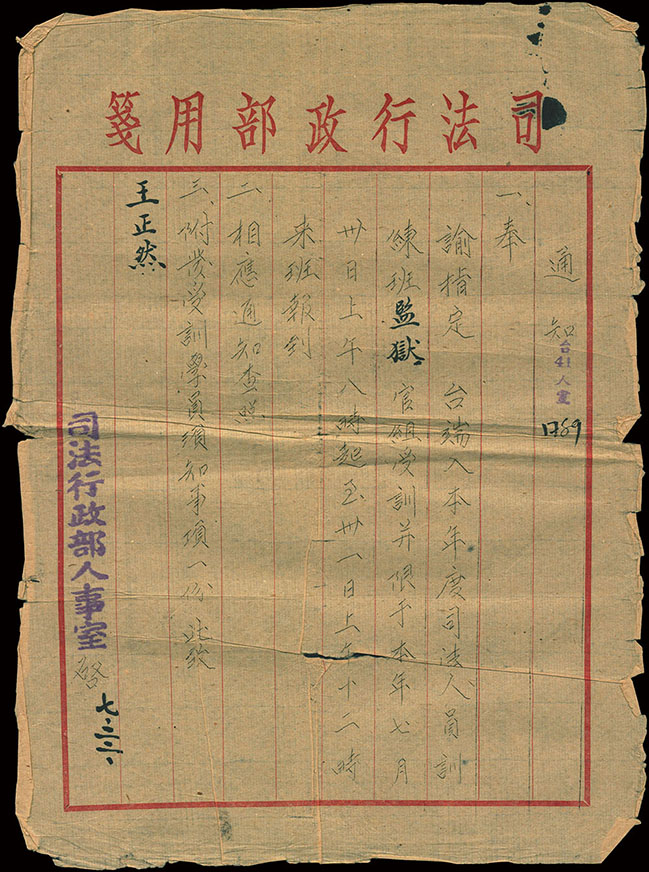 司法行政部用箋
通知
台41人壹
1789
一、奉
諭指定 台端入本年度司法人員訓
練班監獄官組受訓并限于本年七月
卅日上午八時起至卅一日上午十二時
來班報到
二、相應通知查照
三、附發受訓學員須知事項一份 此致
王正然
司法行政部人事室 啓
七、二二、